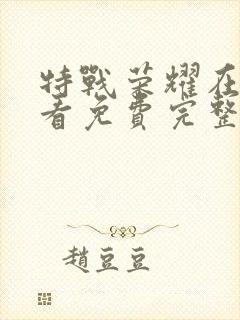 特戰荣耀在
看免費完整
趙豆豆